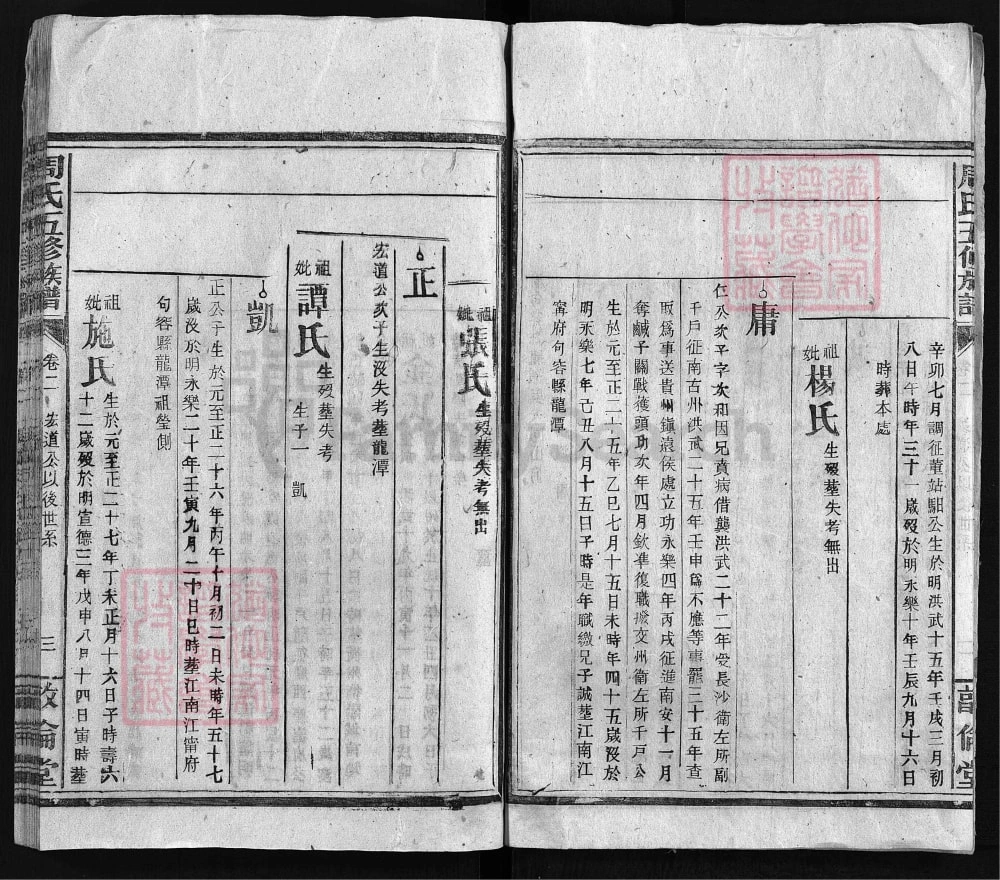 周氏五修族譜
敦倫堂
辛卯七月調征董站駔公生於明洪武十五年壬戌三月初
八日午時年三十一歲歿於明永樂十年壬辰九月十六日
時葬本處
祖妣楊氏生歿塟失考無出
庸
仁公次子字次和因兄貴病借襲洪武二十二年受長沙衛左所副
千戶征南古州洪武二十五年壬申爲不應等事罷三十五年查
取爲事送貴州鎮遠侯處立功永樂四年丙戌征進南安十一月
奪鹹子關厭獲頭功次年四月欽準復職撥交州衛左所千戶公
生於元至正二十五年乙巳七月十五日未時年四十五歲歿於
明永樂七年己丑八月十五日子時是年職繳兄子誠塟江南江
甯府句容縣龍潭
祖妣張氏生歿塟失考無出
正
宏道公次子生沒失考塟龍潭
祖妣譚氏生歿塟失考
生子一 凱
凱
正公子生於元至正二十六年丙午十月初二日未時年五十七
歲沒於明永樂二十年壬寅九月二十日巳時塟江南江甯府
句容縣龍潭祖塋側
祖妣施氏生於元至正二十七年丁未正月十六日子時壽六
十二歲歿於明宣德三年戊申八月十四日寅時塟
周氏五修族譜
卷二
宏道公以後世系
三
敦倫堂